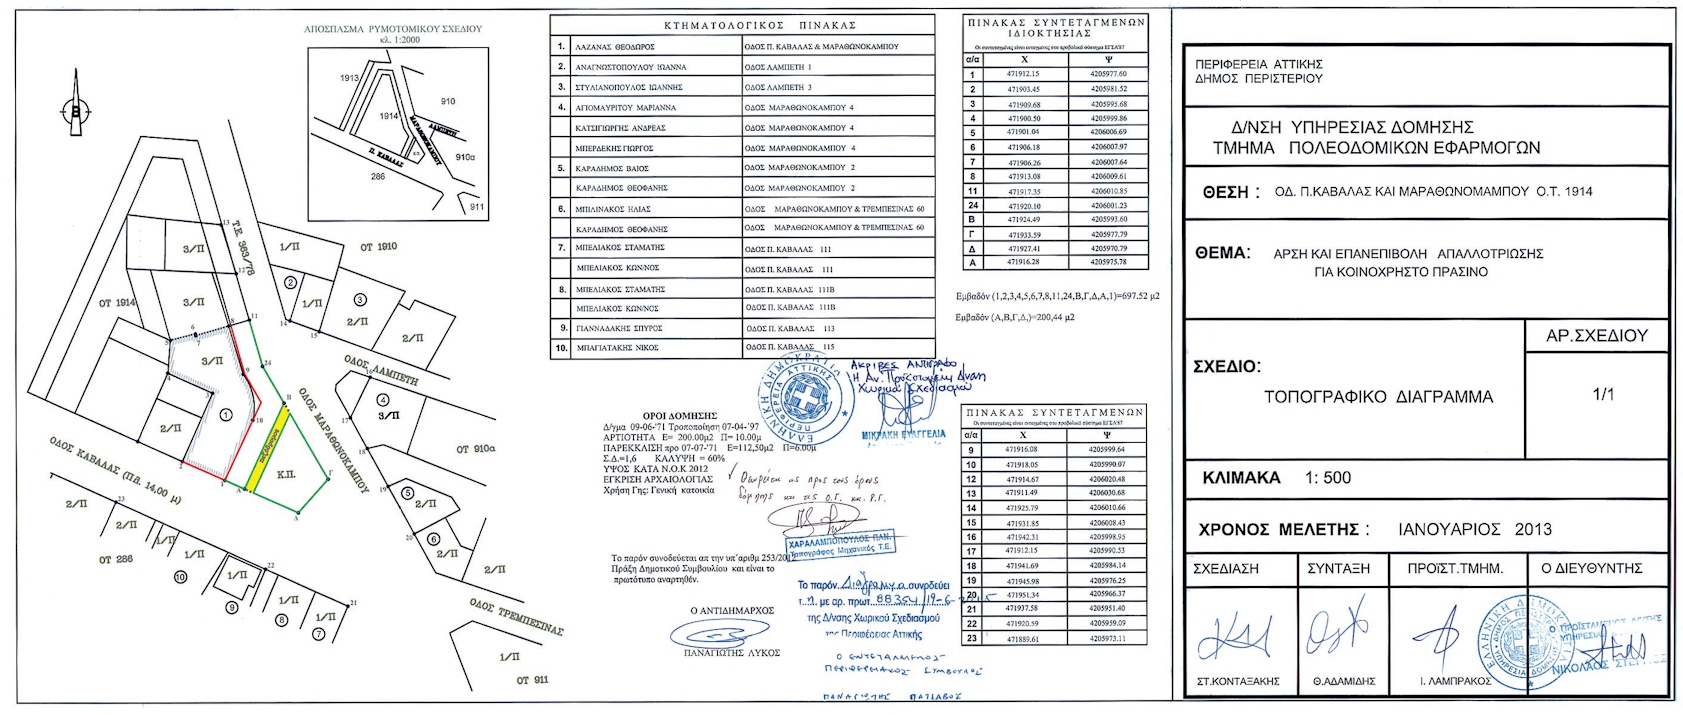 ΑΠΟΣΠΑΣΜΑ ΡΥΜΟΤΟΜΙΚΟΥ ΣΧΕΔΙΟΥ
κλ. 1:2000
1913
910
1914
ΛΑΜΠΕΤΗ
ΜΑΡΑΘΩΝΟΚΑΜΠΟΥ
Π. ΚΑΒΑΛΑΣ
910α
286
911
Β
Τ.Ε. 363/78
ΟΤ 1910
ΟΤ 1914
3/Π
3/Π
3/Π
2/Π
1/Π
1/Π
2/Π
2/Π
3/Π
ΟΔΟΣ ΛΑΜΠΕΤΗ
ΟΔΟΣ ΜΑΡΑΘΩΝΟΚΑΜΠΟΥ
ΟΔΟΣ ΚΑΒΑΛΑΣ (Π.Δ. 14,00 μ)
πεζόδρομος
Κ.Π.
ΟΤ 910α
ΟΤ 286
2/Π
2/Π
1/Π
1/Π
1/Π
1/Π
1/Π
2/Π
2/Π
2/Π
1/Π
ΟΔΟΣ ΤΡΕΜΠΕΣΙΝΑΣ
ΟΤ 911
ΚΤΗΜΑΤΟΛΟΓΙΚΟΣ ΠΙΝΑΚΑΣ
1. ΛΑΖΑΝΑΣ ΘΕΟΔΩΡΟΣ ΟΔΟΣ Π. ΚΑΒΑΛΑΣ & ΜΑΡΑΘΩΝΟΚΑΜΠΟΥ
2. ΑΝΑΓΝΩΣΤΟΠΟΥΛΟΥ ΙΩΑΝΝΑ ΟΔΟΣ ΛΑΜΠΕΤΗ 1
3. ΣΤΥΛΙΑΝΟΠΟΥΛΟΣ ΙΩΑΝΝΗΣ ΟΔΟΣ ΛΑΜΠΕΤΗ 3
4. ΑΓΙΟΜΑΥΡΙΤΟΥ ΜΑΡΙΑΝΝΑ ΟΔΟΣ ΜΑΡΑΘΩΝΟΚΑΜΠΟΥ 4
ΚΑΤΣΙΓΙΩΡΓΗΣ ΑΝΔΡΕΑΣ ΟΔΟΣ ΜΑΡΑΘΩΝΟΚΑΜΠΟΥ 4
ΜΠΕΡΔΕΚΗΣ ΓΙΩΡΓΟΣ ΟΔΟΣ ΜΑΡΑΘΩΝΟΚΑΜΠΟΥ 4
5. ΚΑΡΑΔΗΜΟΣ ΒΑΙΟΣ ΟΔΟΣ ΜΑΡΑΘΩΝΟΚΑΜΠΟΥ 2
ΚΑΡΑΔΗΜΟΣ ΘΕΟΦΑΝΗΣ ΟΔΟΣ ΜΑΡΑΘΩΝΟΚΑΜΠΟΥ 2
6. ΜΠΙΛΙΝΑΚΟΣ ΗΛΙΑΣ ΟΔΟΣ ΜΑΡΑΘΩΝΟΚΑΜΠΟΥ & ΤΡΕΜΠΕΣΙΝΑΣ 60
ΚΑΡΑΔΗΜΟΣ ΘΕΟΦΑΝΗΣ ΟΔΟΣ ΜΑΡΑΘΩΝΟΚΑΜΠΟΥ & ΤΡΕΜΠΕΣΙΝΑΣ 60
7. ΜΠΕΛΙΑΚΟΣ ΣΤΑΜΑΤΗΣ ΟΔΟΣ Π. ΚΑΒΑΛΑΣ 111
ΜΠΕΛΙΑΚΟΣ ΚΩΝ/ΝΟΣ ΟΔΟΣ Π. ΚΑΒΑΛΑΣ 111
8. ΜΠΕΛΙΑΚΟΣ ΣΤΑΜΑΤΗΣ ΟΔΟΣ Π. ΚΑΒΑΛΑΣ 111Β
ΜΠΕΛΙΑΚΟΣ ΚΩΝ/ΝΟΣ ΟΔΟΣ Π. ΚΑΒΑΛΑΣ 111Β
9. ΓΙΑΝΝΑΔΑΚΗΣ ΣΠΥΡΟΣ ΟΔΟΣ Π. ΚΑΒΑΛΑΣ 113
10. ΜΠΑΓΙΑΤΑΚΗΣ ΝΙΚΟΣ ΟΔΟΣ Π. ΚΑΒΑΛΑΣ 115
ΠΙΝΑΚΑΣ ΣΥΝΤΕΤΑΓΜΕΝΩΝ
ΙΔΙΟΚΤΗΣΙΑΣ
Οι συντεταγμένες είναι ενταγμένες στο προβολικό σύστημα ΕΓΣΑ'87
α/α Χ Ψ
1 471912.15 4205977.60
2 471903.45 4205981.52
3 471909.68 4205995.68
4 471900.50 4205999.86
5 471901.04 4206006.69
6 471906.18 4206007.97
7 471906.26 4206007.64
8 471913.08 4206009.61
11 471917.35 4206010.85
24 471920.10 4206001.23
Β 471924.49 4205993.60
Γ 471933.59 4205977.79
Δ 471927.41 4205970.79
Α 471916.28 4205975.78
Εμβαδόν (1,2,3,4,5,6,7,8,11,24,Β,Γ,Δ,Α,1)=697.52 μ2
Εμβαδόν (Α,Β,Γ,Δ,)=200,44 μ2
ΑΚΡΙΒΕΣ ΑΝΤΙΓΡΑΦΟ
Η Αν. Προϊσταμένη Δ/νσης
Χωρικού Σχεδιασμού
ΜΙΚΡΑΚΗ ΕΥΑΓΓΕΛΙΑ
ΕΛΛΗΝΙΚΗ ΔΗΜΟΚΡΑΤΙΑ
ΠΕΡΙΦΕΡΕΙΑ ΑΤΤΙΚΗΣ
ΟΡΟΙ ΔΟΜΗΣΗΣ
Δ/γμα 09-06-'71 Τροποποίηση 07-04-'97
ΑΡΤΙΟΤΗΤΑ Ε= 200.00μ2 Π= 10.00μ
ΠΑΡΕΚΚΛΙΣΗ προ 07-07-'71 Ε=112,50μ2 Π=6.00μ
Σ.Δ.=1,6 ΚΑΛΥΨΗ = 60%
ΥΨΟΣ ΚΑΤΑ Ν.Ο.Κ 2012
ΕΓΚΡΙΣΗ ΑΡΧΑΙΟΛΟΓΙΑΣ
Χρήση Γης: Γενική κατοικία
Θεωρείται ως προς τους όρους
δόμησης και τις Ο.Γ. και Ρ.Γ.
ΧΑΡΑΛΑΜΠΟΠΟΥΛΟΣ ΠΑΝ.
Τοπογράφος Μηχανικός Τ.Ε.
Το παρόν συνοδεύεται απ την υπ΄αριθμ 253/201
Πράξη Δημοτικού Συμβουλίου και είναι το
πρωτότυπο αναρτηθέν.
Ο ΑΝΤΙΔΗΜΑΡΧΟΣ
ΠΑΝΑΓΙΩΤΗΣ ΛΥΚΟΣ
Το παρόν Διάγραμμα συνοδεύει
τ. η με αρ. πρωτ. 88354/19-6-2015
της Δ/νσης Χωρικού Σχεδιασμού
της Περιφέρειας Αττικής
Ο ΕΝΤΕΤΑΛΜΕΝΟΣ
ΠΕΡΙΦΕΡΕΙΑΚΟΣ ΣΥΜΒΟΥΛΟΣ
ΠΑΝΑΓΙΩΤΗΣ
ΠΙΝΑΚΑΣ ΣΥΝΤΕΤΑΓΜΕΝΩΝ
Οι συντεταγμένες είναι ενταγμένες στο προβολικό σύστημα ΕΓΣΑ'87
α/α Χ Ψ
9 471916.08 4205999.64
10 471918.05 4205990.07
12 471914.67 4206020.48
13 471911.49 4206030.68
14 471925.79 4206010.66
15 471931.85 4206008.43
16 471942.31 4205998.95
17 471912.15 4205990.53
18 471941.69 4205984.14
19 471945.98 4205976.25
20 471951.34 4205966.37
21 471937.58 4205951.40
22 471920.59 4205959.09
23 471889.61 4205973.11
ΠΕΡΙΦΕΡΕΙΑ ΑΤΤΙΚΗΣ
ΔΗΜΟΣ ΠΕΡΙΣΤΕΡΙΟΥ
Δ/ΝΣΗ ΥΠΗΡΕΣΙΑΣ ΔΟΜΗΣΗΣ
ΤΜΗΜΑ ΠΟΛΕΟΔΟΜΙΚΩΝ ΕΦΑΡΜΟΓΩΝ
ΘΕΣΗ : ΟΔ. Π.ΚΑΒΑΛΑΣ ΚΑΙ ΜΑΡΑΘΩΝΟΜΑΜΠΟΥ Ο.Τ. 1914
ΘΕΜΑ: ΑΡΣΗ ΚΑΙ ΕΠΑΝΕΠΙΒΟΛΗ ΑΠΑΛΛΟΤΡΙΩΣΗΣ
ΓΙΑ ΚΟΙΝΟΧΡΗΣΤΟ ΠΡΑΣΙΝΟ
ΣΧΕΔΙΟ:
ΤΟΠΟΓΡΑΦΙΚΟ ΔΙΑΓΡΑΜΜΑ
ΑΡ.ΣΧΕΔΙΟΥ
1/1
ΚΛΙΜΑΚΑ 1: 500
ΧΡΟΝΟΣ ΜΕΛΕΤΗΣ : ΙΑΝΟΥΑΡΙΟΣ 2013
ΣΧΕΔΙΑΣΗ ΣΥΝΤΑΞΗ ΠΡΟΪΣΤ.ΤΜΗΜ. Ο ΔΙΕΥΘΥΝΤΗΣ
ΣΤ.ΚΟΝΤΑΞΑΚΗΣ Θ.ΑΔΑΜΙΔΗΣ Ι. ΛΑΜΠΡΑΚΟΣ
ΝΙΚΟΛΑΟΣ